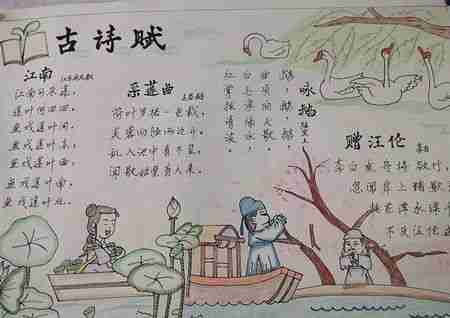 古诗赋
江南
江南可采莲，
莲叶何田田，
鱼戏莲叶间，
鱼戏莲叶东，
鱼戏莲叶西，
鱼戏莲叶南，
鱼戏莲叶北。
采莲曲
荷叶罗裙一色裁，
芙蓉向脸两边开。
乱入池中看不见，
闻歌始觉有人来。
咏鹅
鹅鹅鹅
曲项向天歌，
白毛浮绿水，
红掌拨清波。
赠汪伦
李白
李白乘舟将欲行，
忽闻岸上踏歌
桃花潭水深
不及汪伦